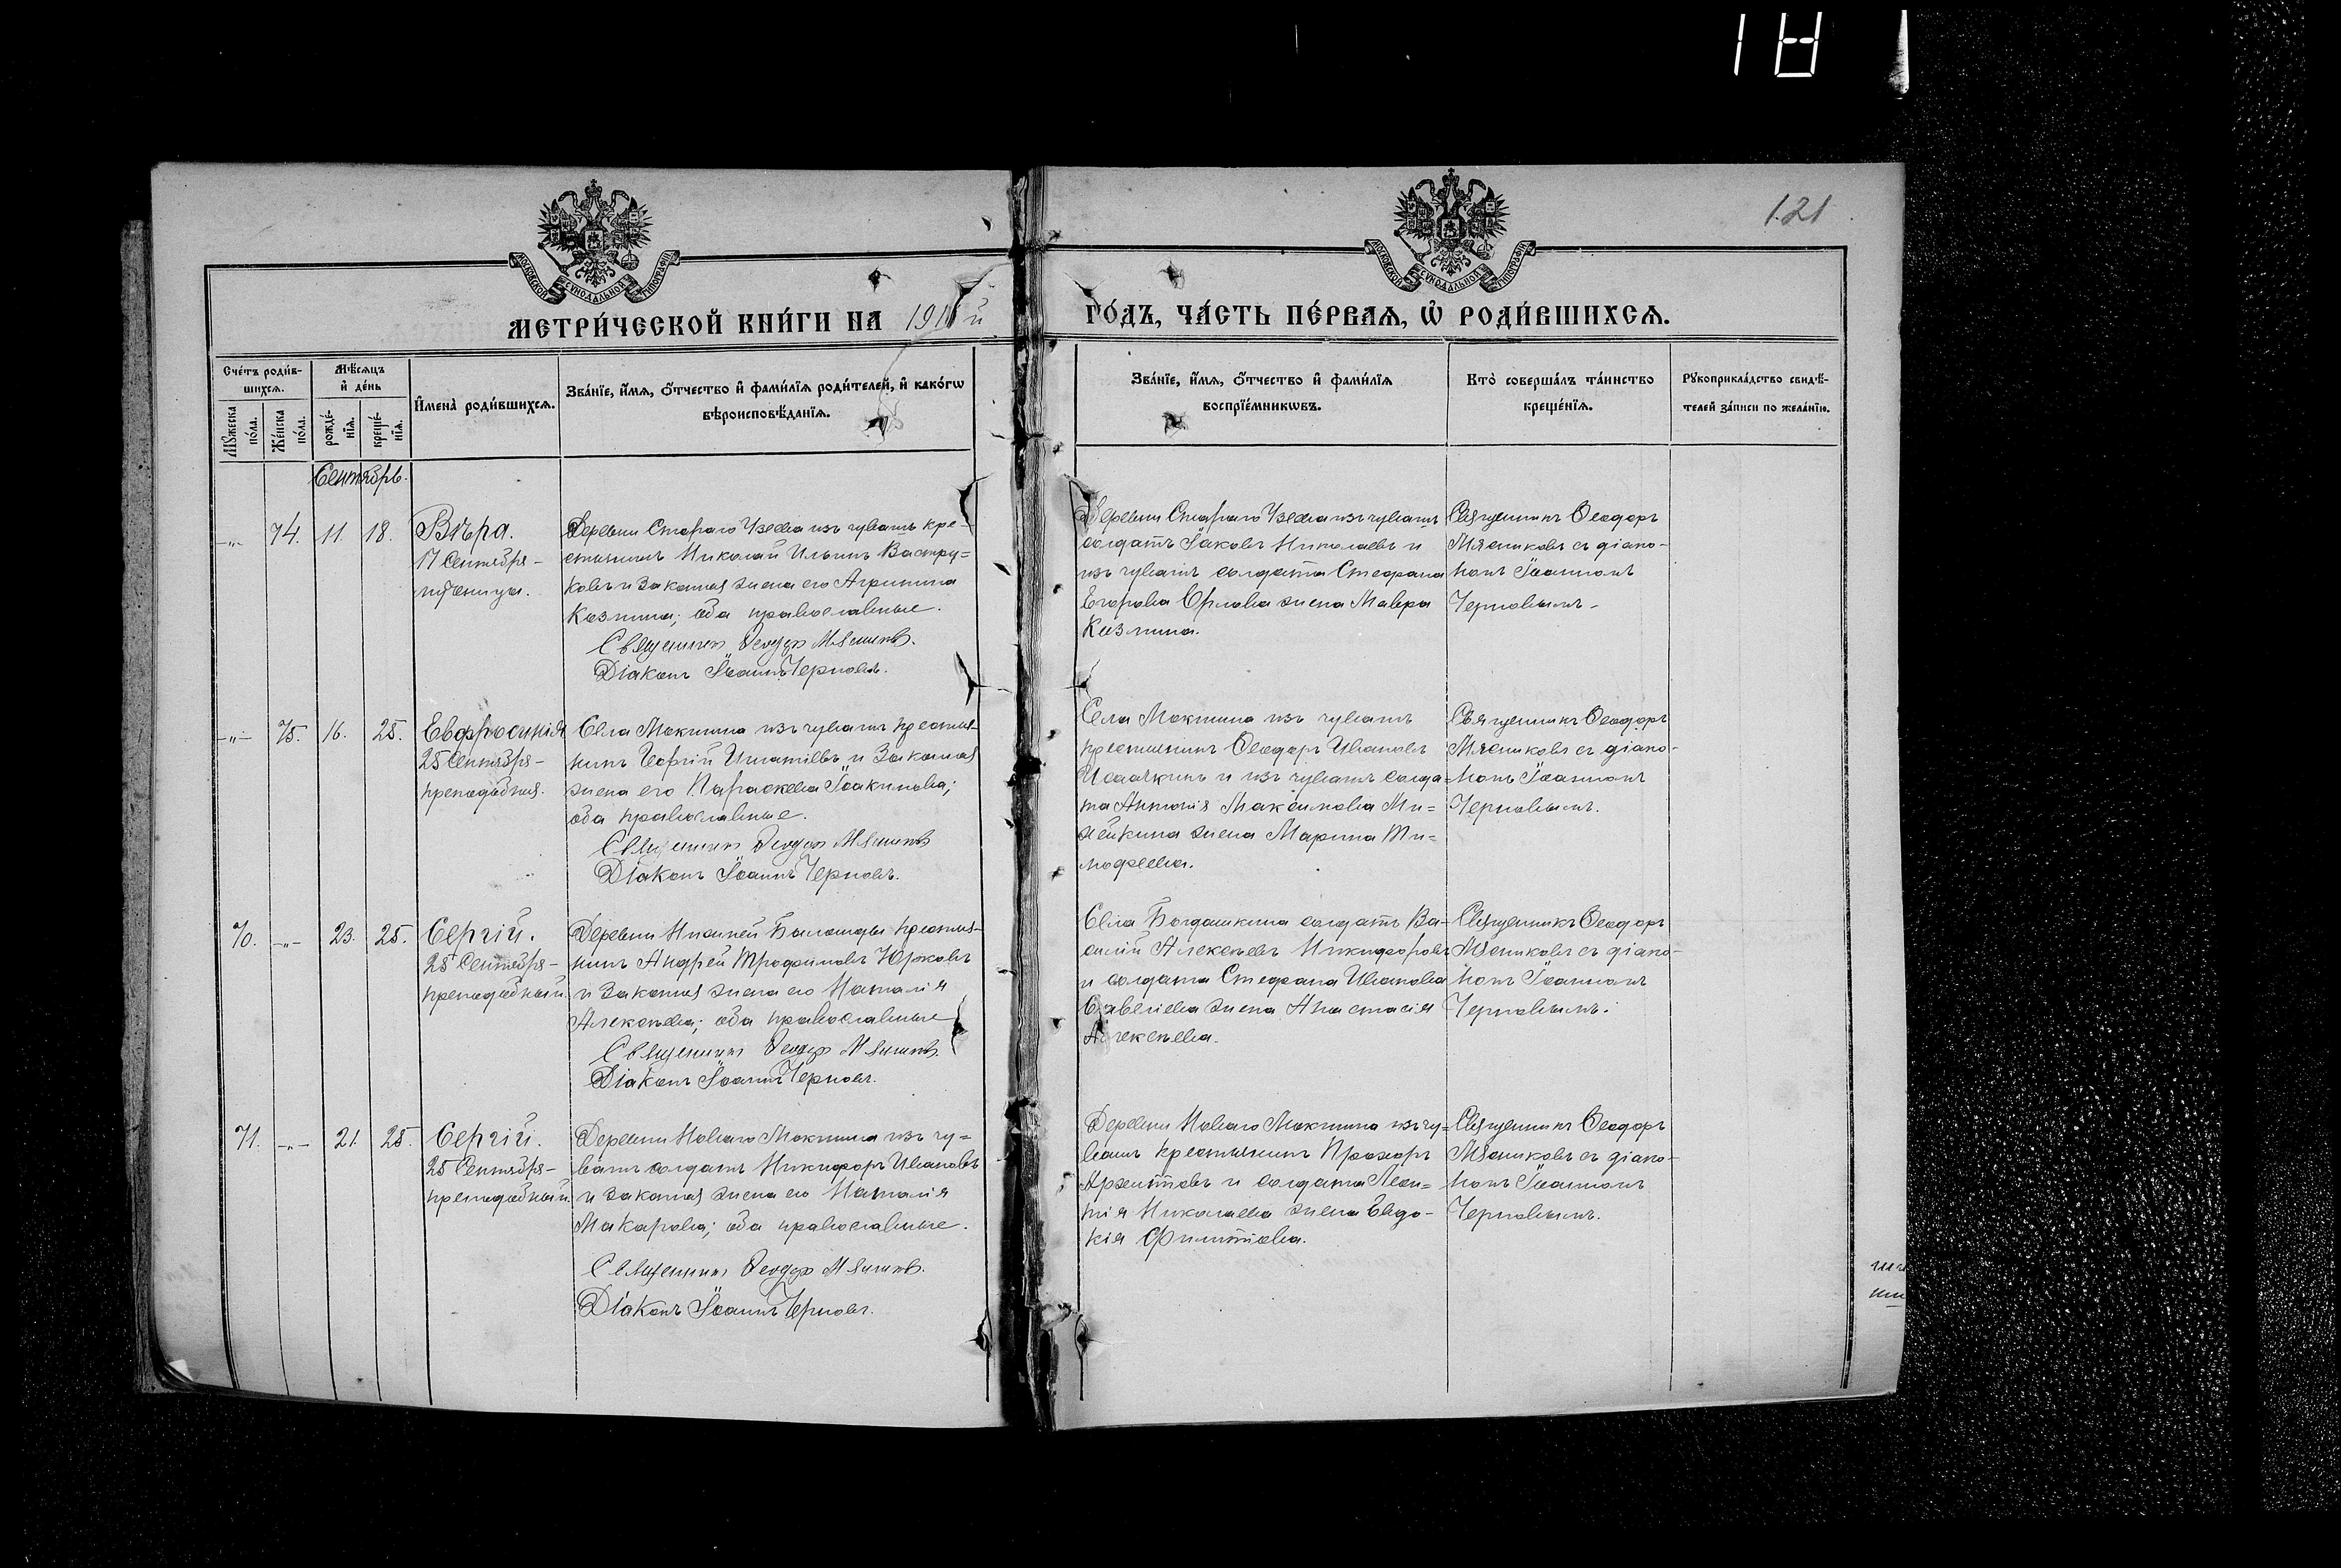 181
121
МОСКОВСКОЙ СѴНОДАЛЬНОЙ ТИПОГРАФІИ
МОСКОВСКОЙ СѴНОДАЛЬНОЙ ТИПОГРАФІИ
МЕТРИ́ЧЕСКОЙ КНИ́ГИ НА й
ГО́ДЪ, ЧА́СТЬ ПЕ́РВАѦ, Ѡ҆ РОДИ́ВШИХСѦ.
Сче́тъ роди́в-
шихсѧ.
Мѣ́сѧцъ
и҆ де́нь
Мꙋ́жеска
по́ла.
Же́нска
по́ла.
рожде́-
нїѧ.
креще́-
нїѧ.
И҆мена̀ роди́вшихсѧ.
Зва́нїе, и҆́мѧ, ѻ҆́тчество и҆ фами́лїѧ роди́телей, и҆ како́гѡ
вѣроисповѣ́данїѧ.
Зва́нїе, и҆́мѧ, ѻ҆́тчество и҆ фами́лїѧ
воспрїе́мникѡвъ.
Кто̀ соверша́лъ та́инство
креще́нїѧ.
Рꙋкоприкла́дство свидѣ́-
телей за́писи по жела́нїю.
Сентябрь.
-"- 74. 11. 18.
Вѣра.
17 Сентября -
мученицы.
Деревни Стараго Узеева изъ чувашъ кре-
стьянинъ Николай Ильинъ Вастру=
ковъ и законная жена его Агрипина
Козмина; оба православные.
Священникъ Ѳеодоръ Мясниковъ.
Діаконъ Іоаннъ Черновъ.
Деревни Стараго Узеева изъ чувашъ
солдатъ Іаковъ Николаевъ и
изъ чувашъ солдата Стефана
Егорова Орлова жена Мавра
Козмина.
Священникъ Ѳеодоръ
Мясниковъ съ діако-
номъ Іоанномъ
Черновымъ.
-"- 75. 16. 25.
Евфросинія
25 Сентября -
преподобная.
Села Мокшина изъ чувашъ крестья-
нинъ Георгій Игнатіевъ и законная
жена его Параскева Іоакимова;
оба православные.
Священникъ Ѳеодоръ Мясниковъ
Діаконъ Іоаннъ Черновъ.
Села Мокшина изъ чувашъ
крестьянинъ Ѳеодоръ Ивановъ
Исаичкинъ и изъ чувашъ солда=
та Антонія Максимова Ми=
хейкина жена Марина Ти=
мофеева.
Священникъ Ѳеодоръ
Мясниковъ съ діако-
номъ Іоанномъ
Черновымъ.
70. -"- 23. 25.
Сергій.
25 Сентября -
преподобный.
Деревни Нижней Баланды крестья-
нинъ Андрей Трофимовъ Юрковъ
и законная жена его Наталія
Алексѣева; оба православные
Священникъ Ѳеодоръ Мясниковъ.
Діаконъ Іоаннъ Черновъ.
Села Богдашкина солдатъ Ва-
силій Алексѣевъ Никифоровъ
и солдата Стефана Иванова
Савельева жена Анастасія
Алексѣева.
Священникъ Ѳеодоръ
Мясниковъ съ діако-
номъ Іоанномъ
Черновымъ.
71. -"- 21. 25.
Сергій.
25 Сентября -
преподобный.
Деревни Новаго Мокшина изъ чу=
вашъ солдатъ Никифоръ Ивановъ
и законная жена его Наталія
Макарова; оба православные.
Священникъ Ѳеодоръ Мясниковъ.
Діаконъ Іоаннъ Черновъ.
Деревни Новаго Мокшина изъ чу=
вашъ крестьянинъ Прохоръ
Архиповъ и солдата Леон=
тія Николаева жена Евдо-
кія Филиппова.
Священникъ Ѳеодоръ
Мясниковъ съ діако-
номъ Іоанномъ
Черновымъ.